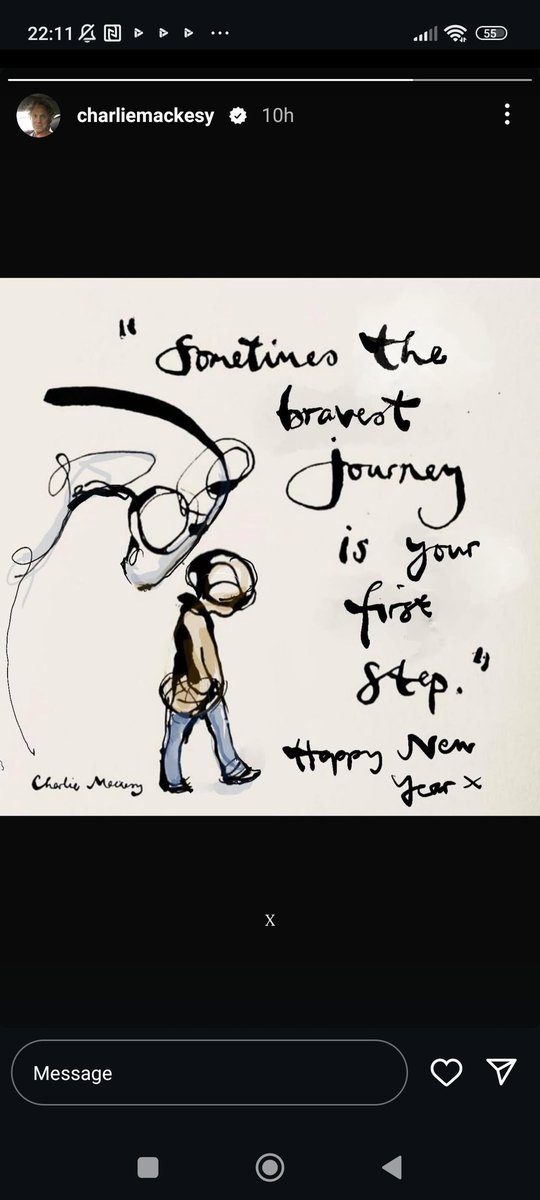 22:11
55
charliemackesy 10h
"Sometimes the
bravest
journey
is your
first
step."
Happy New
Year x
Charlie Mackesy
X
Message